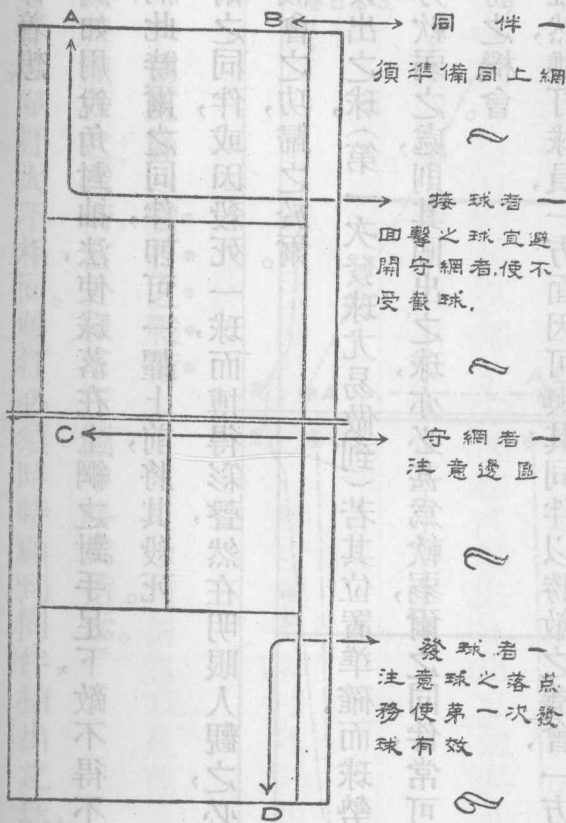 A
B
同伴—
須準備同上網
接球者—
回擊之球宜避
開守網者,使不
受截球.
C
守網者—
注意邊區
發球者—
注意球之落点
務使第一次發
球有效
D